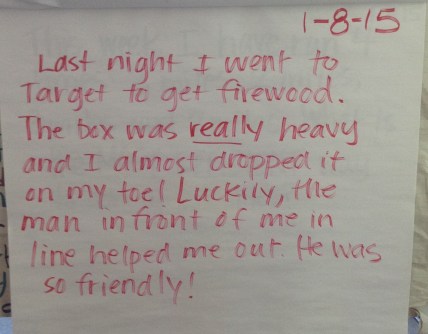 1-8-15
Last night I went to
Target to get firewood.
The box was really heavy
and I almost dropped it
on my toe! Luckily, the
man in front of me in
line helped me out. He was
so friendly!